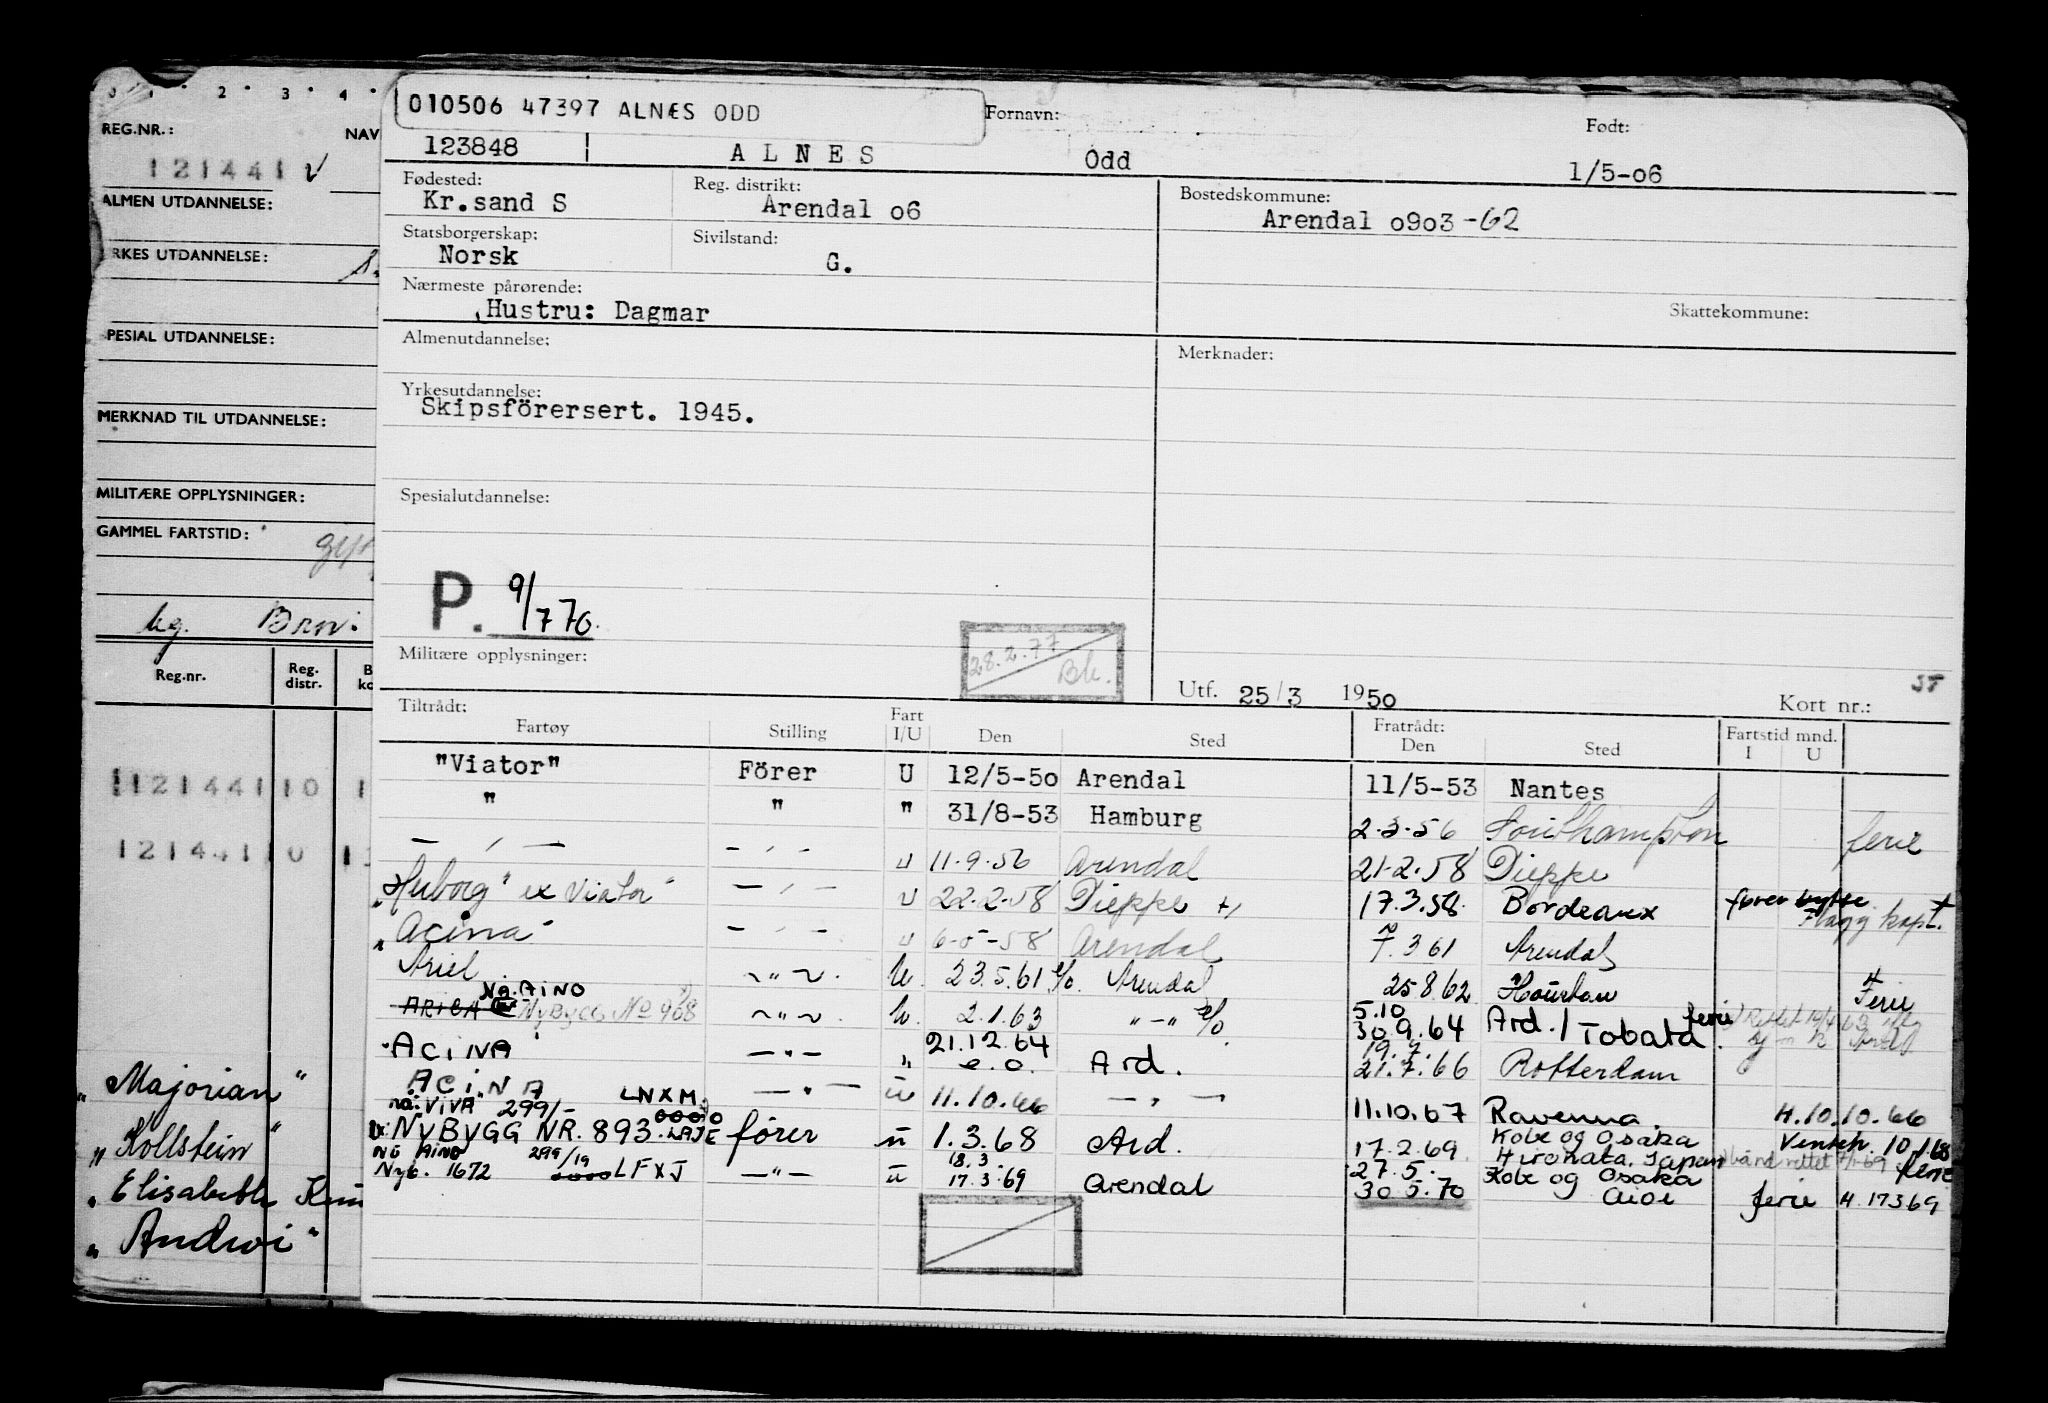 0 1 2 3 4
REG.NR.:
NAV
121441 v
ALMEN UTDANNELSE:
RKES UTDANNELSE:
PESIAL UTDANNELSE:
MERKNAD TIL UTDANNELSE:
MILITÆRE OPPLYSNINGER:
GAMMEL FARTSTID:
Reg.nr. Reg. distr.
121441 0 1
121441 0 1
"Majorian"
"Kollstein"
"Elisabeth
"Andwi"
010506 47397 ALNÆS ODD
Fornavn: Født:
123848 ALNES Odd 1/5-06
Fødested: Reg. distrikt: Bostedskommune:
Kr.sand S Arendal 06 Arendal 0903-62
Statsborgerskap: Sivilstand:
Norsk G.
Nærmeste pårørende:
Hustru: Dagmar
Skattekommune:
Almenutdannelse: Merknader:
Yrkesutdannelse:
Skipsförersert. 1945.
Spesialutdannelse:
P. 9/7 70.
Militære opplysninger:
28.2.77 Bk.
Utf. 25/3 1950 Kort nr.:
Tiltrådt: Fratrådt: Fartstid mnd.
Fartøy Stilling Fart I/U Den Sted Den Sted I U
"Viator" Förer U 12/5-50 Arendal 11/5-53 Nantes
" " " 31/8-53 Hamburg 2.3.56 Southampton ferie
— " — - " - u 11.9.56 Arendal 21.2.58 Dieppe
"Herborg" ex Viator" — " — u 22.2.58 Dieppe 17.3.58 Bordeaux Flagg kapt.
"Acina" - " - u 6-5-58 Arendal 7.3 61 Arendal
Ariel ~ " ~ u. 23.5.61 e/o. Arendal 25 8.62 Houston Ferie
Nå. AINO
ARICA Nybygg No 968 ~ " ~ u. 2.1.63 " - " e/o. 5.10 30.9.64 Ard./Tobata ferie
"ACINA" — " — " 21.12.64 e.o. Ard. 19.7. 21.7.66 Rotterdam
ACINA — " — u 11.10.66 — " — 11.10.67 Ravenna H.10.10.66
nå: "VIVA" 299/- LNXM
NYBYGG NR. 893 LAJE förer u 1.3.68 Ard. 17.2.69 Kobe og Osaka Hironata, Japan 10.1.68
nå AINO 299/19
Nyb. 1672 LFXJ — " — u 18.3. 17.3.69 Arendal 27.5. 30 5.70 Kobe og Osaka Aioi ferie H. 17369